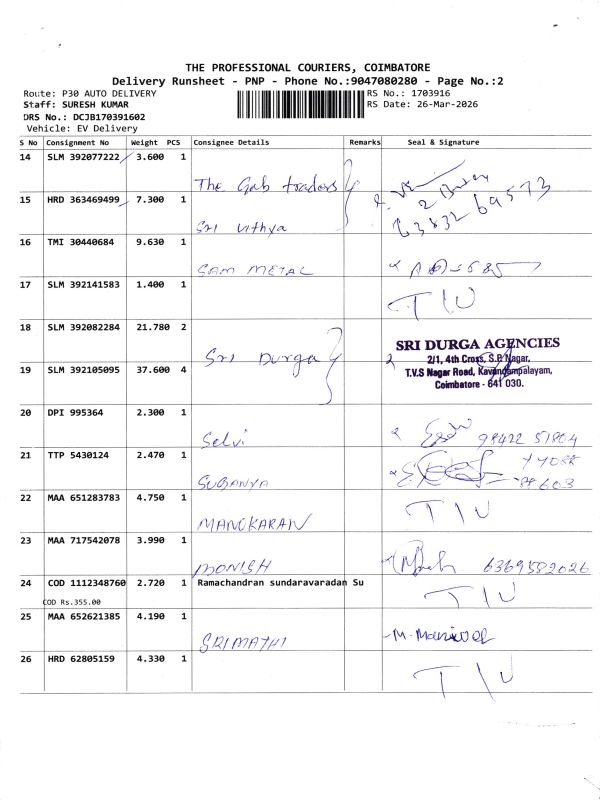 THE PROFESSIONAL COURIERS, COIMBATORE
Delivery Runsheet - PNP - Phone No.:9047080280 - Page No.:2
Route: P30 AUTO DELIVERY
Staff: SURESH KUMAR
DRS No.: DCJB170391602
Vehicle: EV Delivery
RS No.: 1703916
RS Date: 26-Mar-2026
S No Consignment No Weight PCS Consignee Details Remarks Seal & Signature
14 SLM 392077222 3.600 1 The Gab traders
15 HRD 363469499 7.300 1 Sri Vithya
16 TMI 30440684 9.630 1 SAM METAL
17 SLM 392141583 1.400 1 T I U
18 SLM 392082284 21.780 2 Sri Durga
SRI DURGA AGENCIES
2/1, 4th Cross, S.P. Nagar,
T.V.S Nagar Road, Kavundampalayam,
Coimbatore - 641 030.
19 SLM 392105095 37.600 4
20 DPI 995364 2.300 1 Selvi 98422 51804
21 TTP 5430124 2.470 1 SUGANYA
22 MAA 651283783 4.750 1 MANOKARAN T I U
23 MAA 717542078 3.990 1 MONISH 6369582026
24 COD 1112348760 2.720 1 Ramachandran sundaravaradan Su T I U
COD Rs.355.00
25 MAA 652621385 4.190 1 SRIMATHI
26 HRD 62805159 4.330 1 T I U